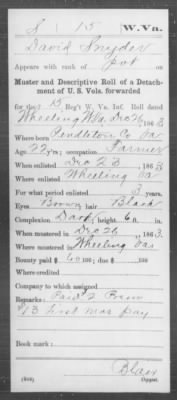 S 15 W. Va.
David Snyder
Appears with rank of Pvt on
Muster and Descriptive Roll of a Detachment
of U. S. Vols. forwarded
for the 15 Reg't W. Va. Inf. Roll dated
Wheeling W Va, Dec 26, 1863
Where born Pendleton Co Va
Age 22 y'rs; occupation Farmer
When enlisted Dec 23, 1863
Where enlisted Wheeling Va
For what period enlisted 3 years.
Eyes Brown; hair Black
Complexion Dark; height 6 ft. in.
When mustered in Dec 26, 1863
Where mustered in Wheeling Va
Bounty paid $ 60 100; due $ 100
Where credited
Company to which assigned
Remarks: Paid 2 Prem
$13 first mos pay
Book mark:
Blair
Copyist.